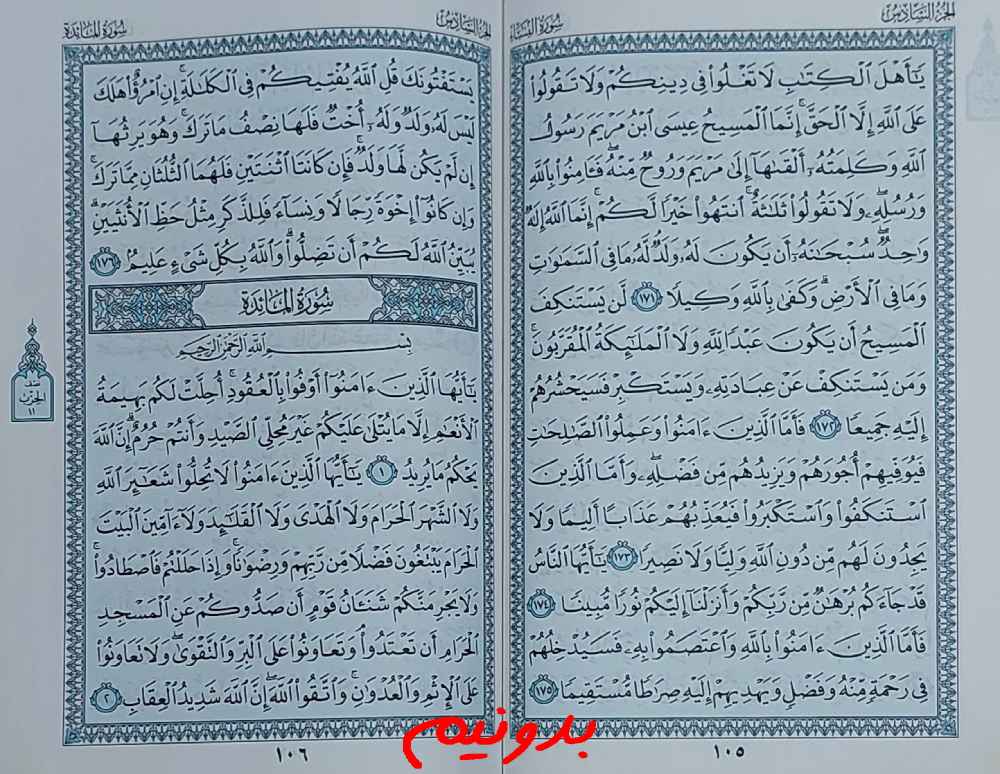 الجزء السادس
سورة النساء
يَٰٓأَهْلَ ٱلْكِتَٰبِ لَا تَغْلُوا۟ فِى دِينِكُمْ وَلَا تَقُولُوا۟
عَلَى ٱللَّهِ إِلَّا ٱلْحَقَّ ۚ إِنَّمَا ٱلْمَسِيحُ عِيسَى ٱبْنُ مَرْيَمَ رَسُولُ
ٱللَّهِ وَكَلِمَتُهُۥٓ أَلْقَىٰهَآ إِلَىٰ مَرْيَمَ وَرُوحٌ مِّنْهُ ۖ فَـَٔامِنُوا۟ بِٱللَّهِ
وَرُسُلِهِۦ ۖ وَلَا تَقُولُوا۟ ثَلَٰثَةٌ ۚ ٱنتَهُوا۟ خَيْرًا لَّكُمْ ۚ إِنَّمَا ٱللَّهُ إِلَٰهٌ
وَٰحِدٌ ۖ سُبْحَٰنَهُۥٓ أَن يَكُونَ لَهُۥ وَلَدٌ ۘ لَّهُۥ مَا فِى ٱلسَّمَٰوَٰتِ
وَمَا فِى ٱلْأَرْضِ ۗ وَكَفَىٰ بِٱللَّهِ وَكِيلًا ١٧١ لَّن يَسْتَنكِفَ
ٱلْمَسِيحُ أَن يَكُونَ عَبْدًا لِّلَّهِ وَلَا ٱلْمَلَٰٓئِكَةُ ٱلْمُقَرَّبُونَ ۚ
وَمَن يَسْتَنكِفْ عَنْ عِبَادَتِهِۦ وَيَسْتَكْبِرْ فَسَيَحْشُرُهُمْ
إِلَيْهِ جَمِيعًا ١٧٢ فَأَمَّا ٱلَّذِينَ ءَامَنُوا۟ وَعَمِلُوا۟ ٱلصَّٰلِحَٰتِ
فَيُوَفِّيهِمْ أُجُورَهُمْ وَيَزِيدُهُم مِّن فَضْلِهِۦ ۖ وَأَمَّا ٱلَّذِينَ
ٱسْتَنكَفُوا۟ وَٱسْتَكْبَرُوا۟ فَيُعَذِّبُهُمْ عَذَابًا أَلِيمًا وَلَا
يَجِدُونَ لَهُم مِّن دُونِ ٱللَّهِ وَلِيًّا وَلَا نَصِيرًا ١٧٣ يَٰٓأَيُّهَا ٱلنَّاسُ
قَدْ جَآءَكُم بُرْهَٰنٌ مِّن رَّبِّكُمْ وَأَنزَلْنَآ إِلَيْكُمْ نُورًا مُّبِينًا ١٧٤
فَأَمَّا ٱلَّذِينَ ءَامَنُوا۟ بِٱللَّهِ وَٱعْتَصَمُوا۟ بِهِۦ فَسَيُدْخِلُهُمْ
فِى رَحْمَةٍ مِّنْهُ وَفَضْلٍ وَيَهْدِيهِمْ إِلَيْهِ صِرَٰطًا مُّسْتَقِيمًا ١٧٥
١٠٥
الجزء السادس
سورة المائدة
يَسْتَفْتُونَكَ قُلِ ٱللَّهُ يُفْتِيكُمْ فِى ٱلْكَلَٰلَةِ ۚ إِنِ ٱمْرُؤٌا۟ هَلَكَ
لَيْسَ لَهُۥ وَلَدٌ وَلَهُۥٓ أُخْتٌ فَلَهَا نِصْفُ مَا تَرَكَ ۚ وَهُوَ يَرِثُهَآ
إِن لَّمْ يَكُن لَّهَا وَلَدٌ ۚ فَإِن كَانَتَا ٱثْنَتَيْنِ فَلَهُمَا ٱلثُّلُثَانِ مِمَّا تَرَكَ ۚ
وَإِن كَانُوٓا۟ إِخْوَةً رِّجَالًا وَنِسَآءً فَلِلذَّكَرِ مِثْلُ حَظِّ ٱلْأُنثَيَيْنِ ۗ
يُبَيِّنُ ٱللَّهُ لَكُمْ أَن تَضِلُّوا۟ ۗ وَٱللَّهُ بِكُلِّ شَىْءٍ عَلِيمٌۢ ١٧٦
سُورَةُ المَائِدَة
بِسْمِ ٱللَّهِ ٱلرَّحْمَٰنِ ٱلرَّحِيمِ
يَٰٓأَيُّهَا ٱلَّذِينَ ءَامَنُوٓا۟ أَوْفُوا۟ بِٱلْعُقُودِ ۚ أُحِلَّتْ لَكُم بَهِيمَةُ
ٱلْأَنْعَٰمِ إِلَّا مَا يُتْلَىٰ عَلَيْكُمْ غَيْرَ مُحِلِّى ٱلصَّيْدِ وَأَنتُمْ حُرُمٌ ۗ إِنَّ ٱللَّهَ
يَحْكُمُ مَا يُرِيدُ ١ يَٰٓأَيُّهَا ٱلَّذِينَ ءَامَنُوا۟ لَا تُحِلُّوا۟ شَعَٰٓئِرَ ٱللَّهِ
وَلَا ٱلشَّهْرَ ٱلْحَرَامَ وَلَا ٱلْهَدْىَ وَلَا ٱلْقَلَٰٓئِدَ وَلَآ ءَآمِّينَ ٱلْبَيْتَ
ٱلْحَرَامَ يَبْتَغُونَ فَضْلًا مِّن رَّبِّهِمْ وَرِضْوَٰنًا ۚ وَإِذَا حَلَلْتُمْ فَٱصْطَادُوا۟ ۚ
وَلَا يَجْرِمَنَّكُمْ شَنَـَٔانُ قَوْمٍ أَن صَدُّوكُمْ عَنِ ٱلْمَسْجِدِ
ٱلْحَرَامِ أَن تَعْتَدُوا۟ ۘ وَتَعَاوَنُوا۟ عَلَى ٱلْبِرِّ وَٱلتَّقْوَىٰ ۖ وَلَا تَعَاوَنُوا۟
عَلَى ٱلْإِثْمِ وَٱلْعُدْوَٰنِ ۚ وَٱتَّقُوا۟ ٱللَّهَ ۖ إِنَّ ٱللَّهَ شَدِيدُ ٱلْعِقَابِ ٢
١٠٦
نصف
الحزب
١١
بدونیم